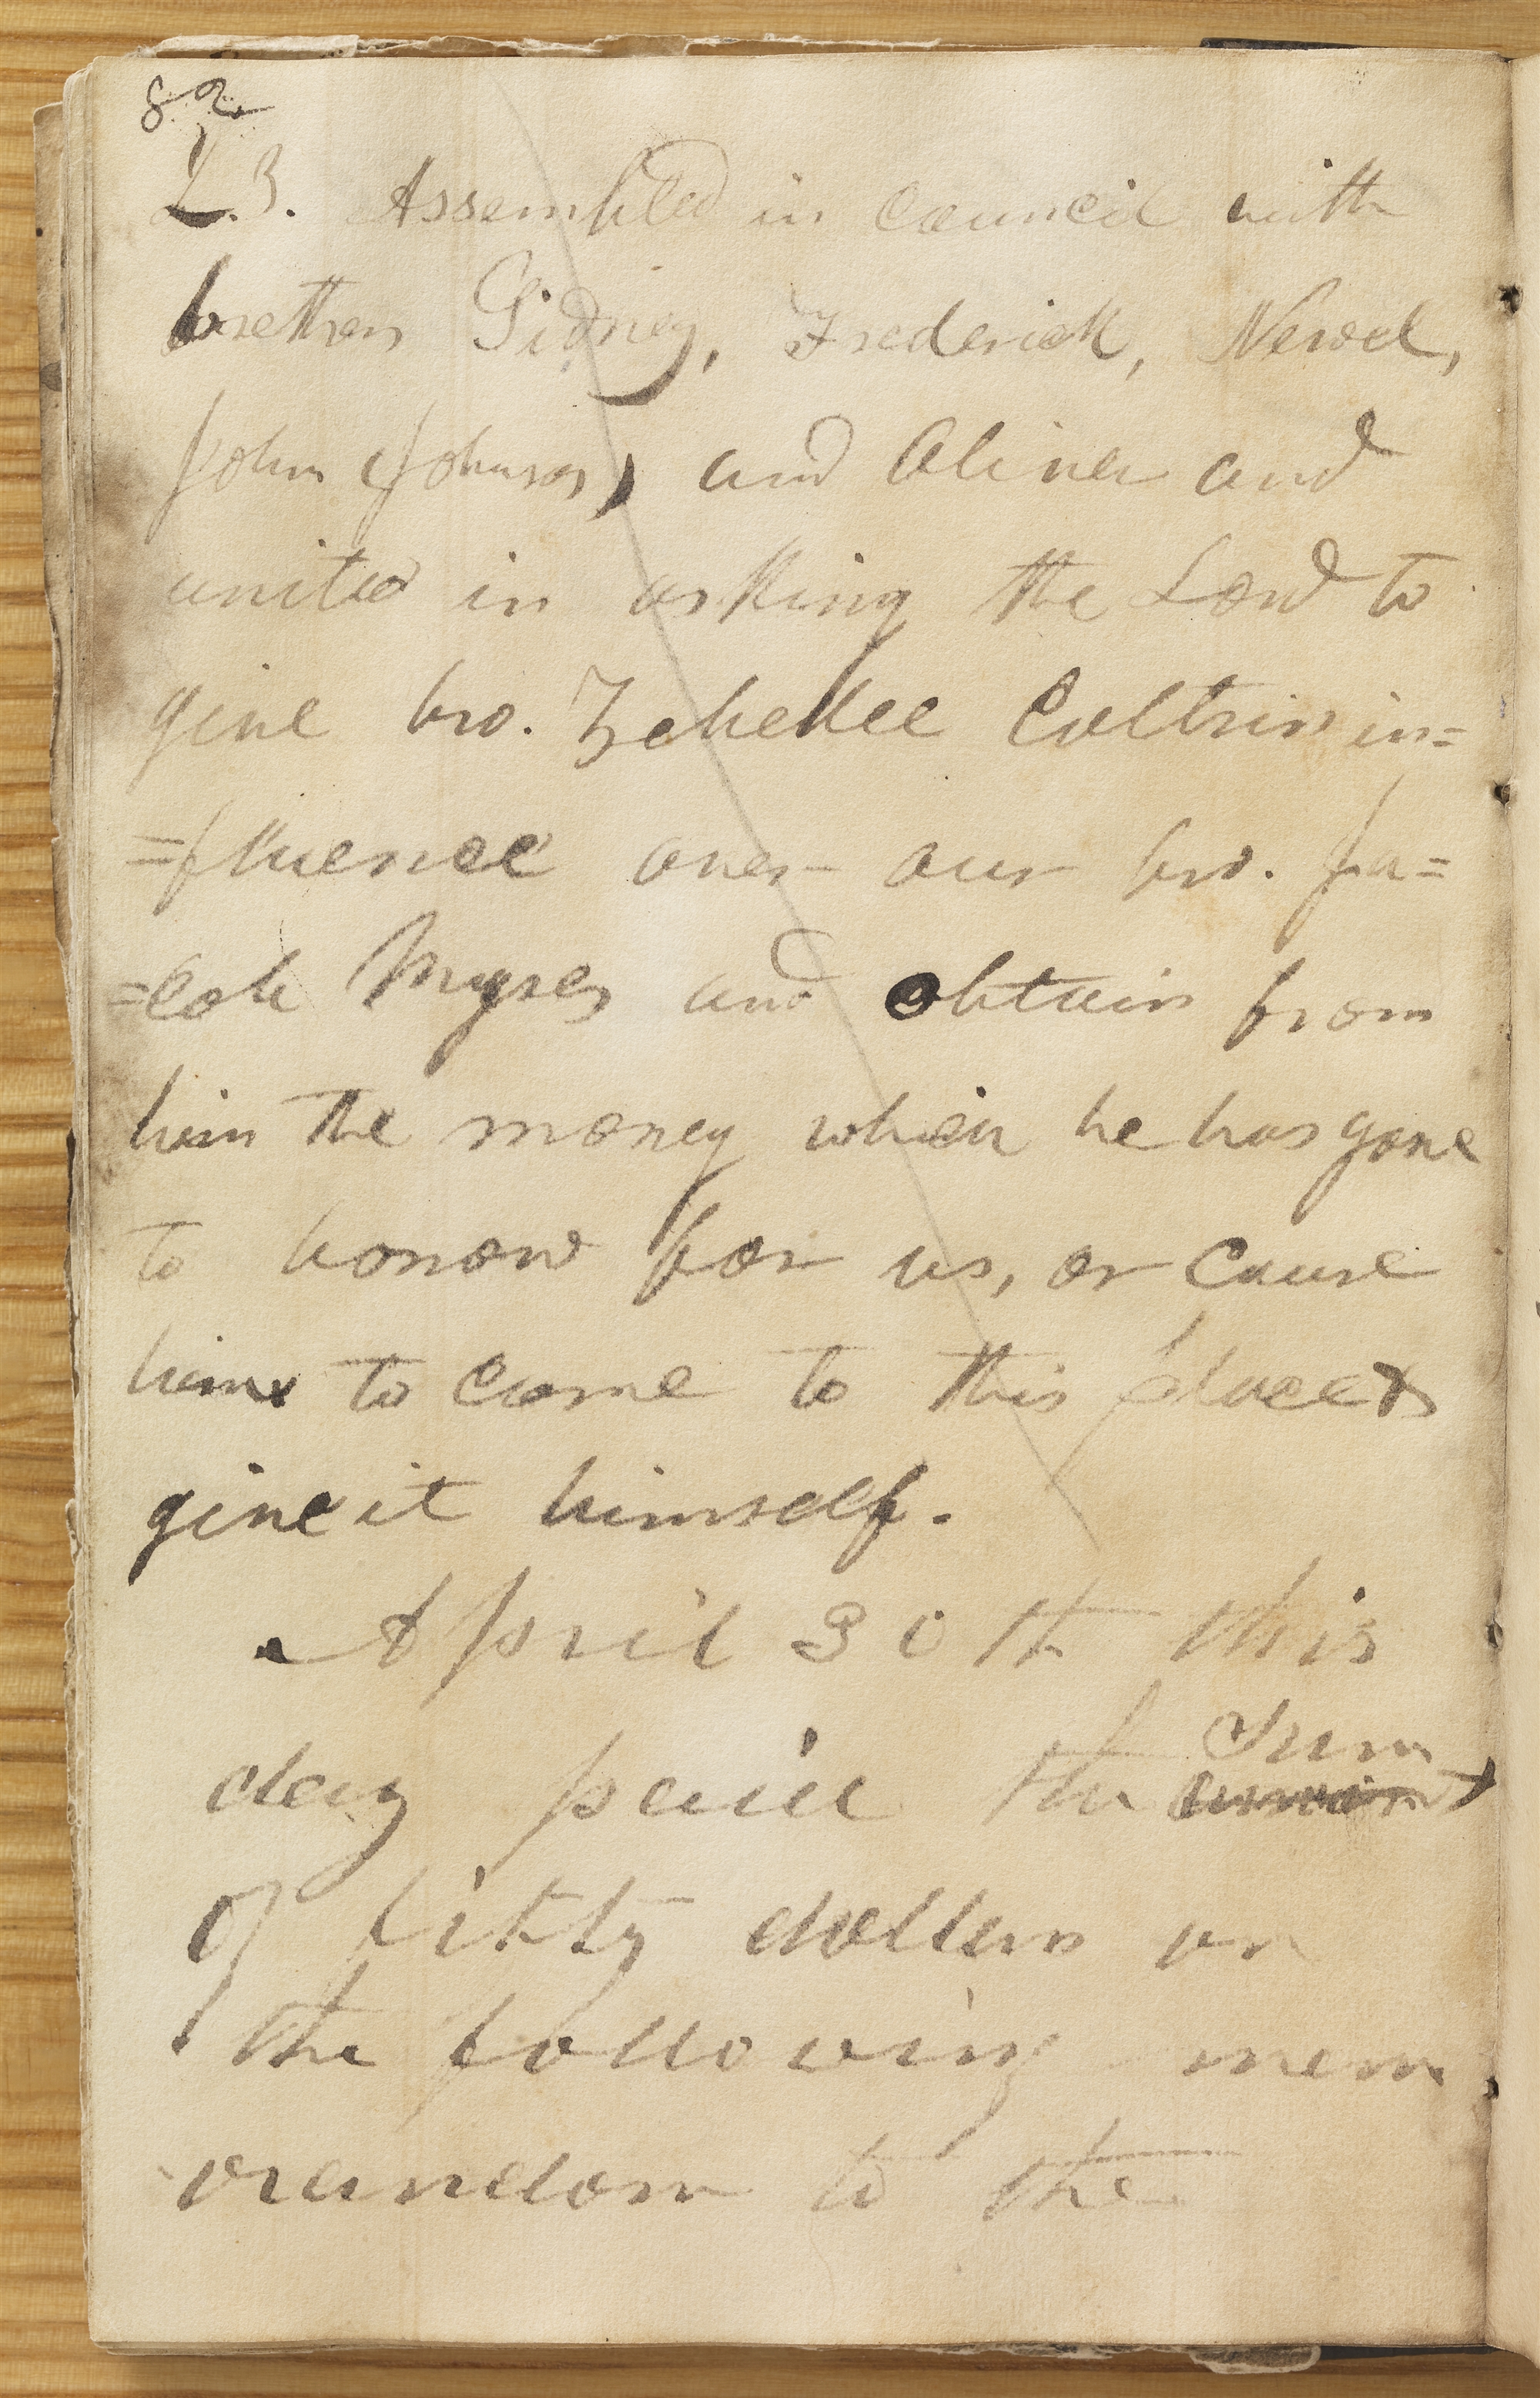 82
23. Assembled in council with
brethren Sidney, Frederick, Newel,
John Johnson, and Oliver and
united in asking the Lord to
give bro. Zebedee Coltrin in=
=fluence over our bro. Ja=
=cob Myres and obtain from
him the money which he has gone
to borrow for us, or cause
him to come to this place &
give it himself.
April 30th this
day paid the Sum
amount
of fifty dollars on
the following mem
orandom to the